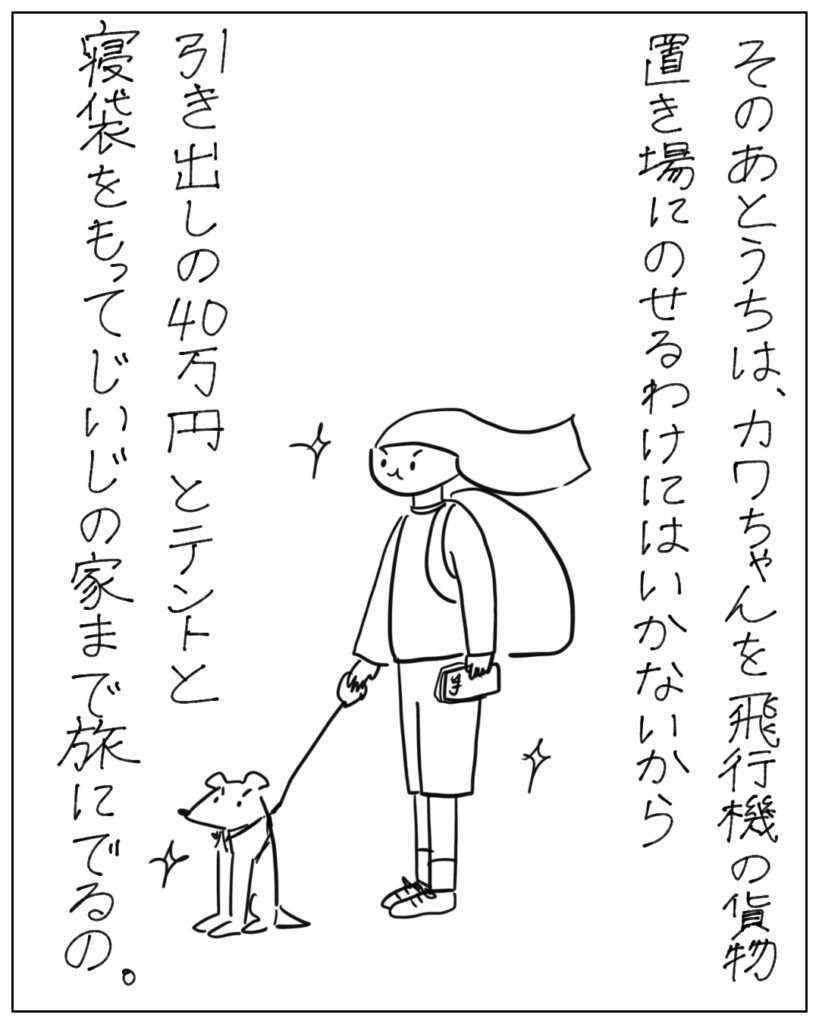 そのあとうちは、カワちゃんを飛行機の貨物
置き場にのせるわけにはいかないから
引き出しの40万円とテントと
寝袋をもってじいじの家まで旅にでるの。